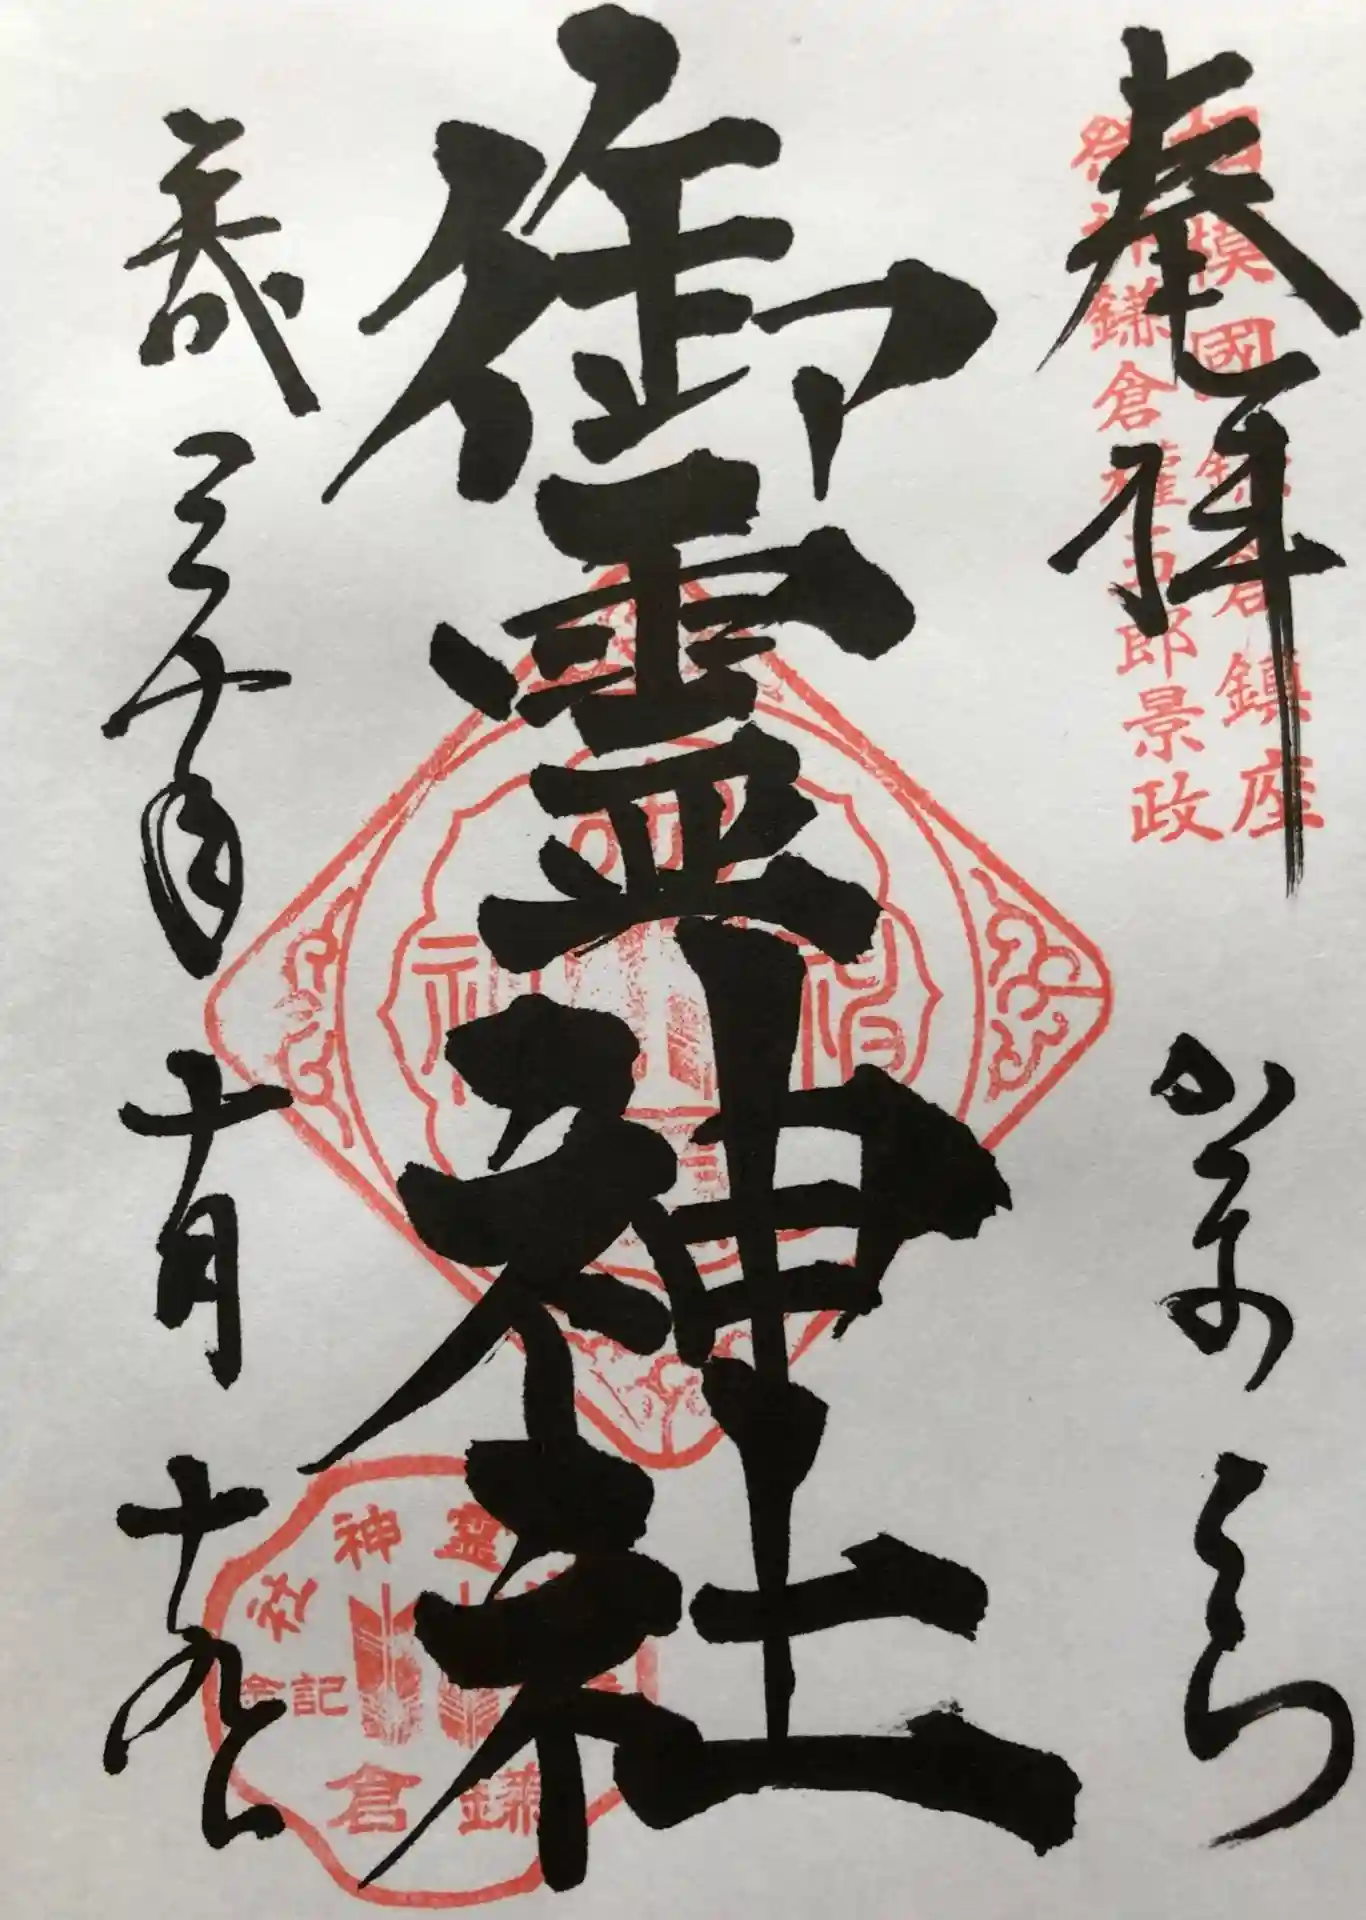 奉拝 かまくら
相模國鎌倉鎮座
祭神鎌倉權五郎景政
御霊神社
平成三十年十月十九日
靈神社
記念
鎌倉